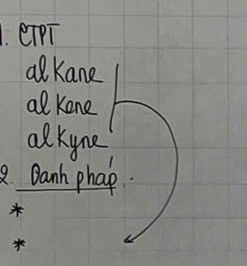 1. CTPT
alkane
alkene
alkyne
2. Danh pháp.
*
*